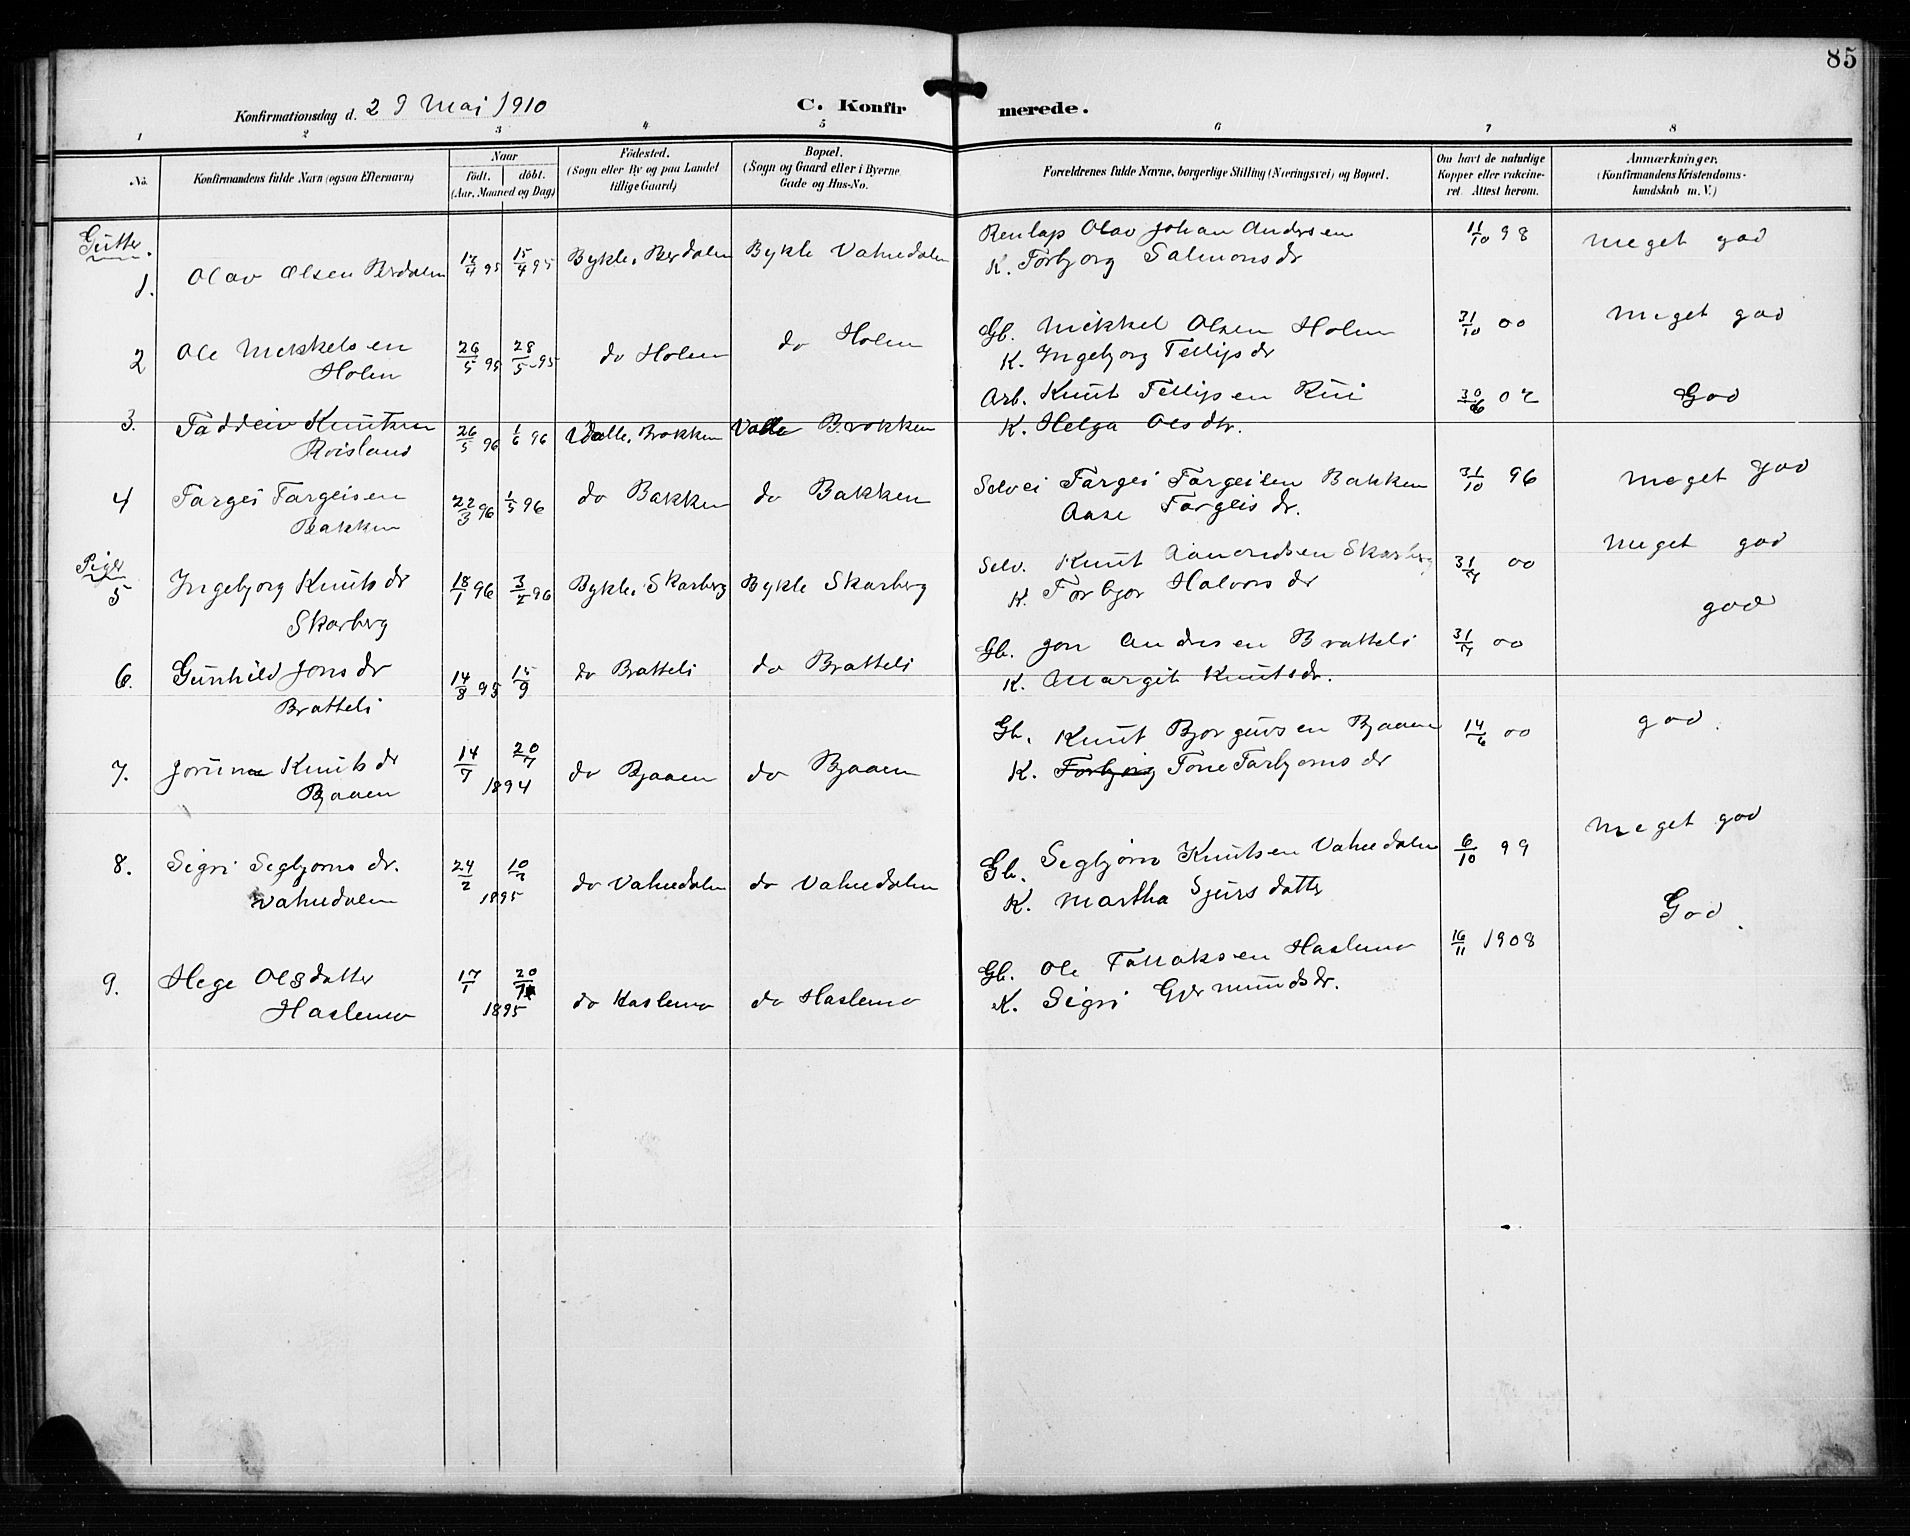 85
Konfirmationsdag d. 29 Mai 1910
C. Konfirmerede.
1 2 3 4 5 6 7 8
No.
Konfirmandens fulde Navn (ogsaa Efternavn)
Naar
födt. döbt.
(Aar, Maaned og Dag)
Födested.
(Sogn eller By og paa Landet
tillige Gaard)
Bopæl.
(Sogn og Gaard eller i Byerne
Gade og Hus-No.
Forældrenes fulde Navne, borgerlige Stilling (Næringsvei) og Bopæl.
Om havt de naturlige
Kopper eller vakcine-
ret. Attest herom.
Anmærkninger.
(Konfirmandens Kristendoms-
kundskab m. V.)
Gutter.
1. Olav Olsen Berdalen 14/4 95 15/4 95 Bykle, Berdalen Bykle Vatnedalen
Renlap Olav Johan Andersen
K. Torbjorg Salmonsdr
11/10 98 meget god
2 Ole Mikkelsen
Holen
26/5 95 28/5 95 do Holen do Holen
Gb. Mikkel Olsen Holen
K. Ingebjorg Tellifsdr
31/10 00 meget god
3. Taddeiv Knutsen
Roisland
26/5 96 1/6 96 Valle, Brokken Valle Brokken
Arb. Knut Tellifsen Rui
K. Helga Olsdtr.
30/6 02 God
4 Targei Targeisen
Bakken
22/3 96 1/5 96 do Bakken do Bakken
Selvei Targei Targeisen Bakken
Aase Torgeisdr.
31/10 96 meget god
Piger
5 Ingebjorg Knutsdr
Skarberg
18/1 96 3/2 96 Bykle, Skarberg Bykle Skarberg
Selv. Knut Aamundsen Skarberg
K. Torbjor Halvorsdr
31/7 00 meget god
6. Gunhild Jonsdr
Bratteli
14/8 95 15/9 do Bratteli do Bratteli
Gb. Jon Andersen Bratteli
K. Margit Knutsdr.
31/7 00 god
7. Jorun Knutsdr
Bjaaen
14/7 20/7 1894 do Bjaaen do Bjaaen
Gb. Knut Bjorgulvsen Bjaaen
K. Torbjorg Tone Tarbjornsdr
14/6 00 god.
8. Sigri Segbjornsdr.
Vatnedalen
24/2 10/3 1895 do Vatnedalen do Vatnedalen
Gb. Segbjörn Knutsen Vatnedalen
K. Martha Sjursdatter
6/10 99 meget god
9. Hege Olsdatter
Haslemo
17/1 20/1 1895 do Haslemo do Haslemo
Gb. Ole Tallaksen Haslemo
K. Sigri Gjermundsdr.
16/11 1908 God.